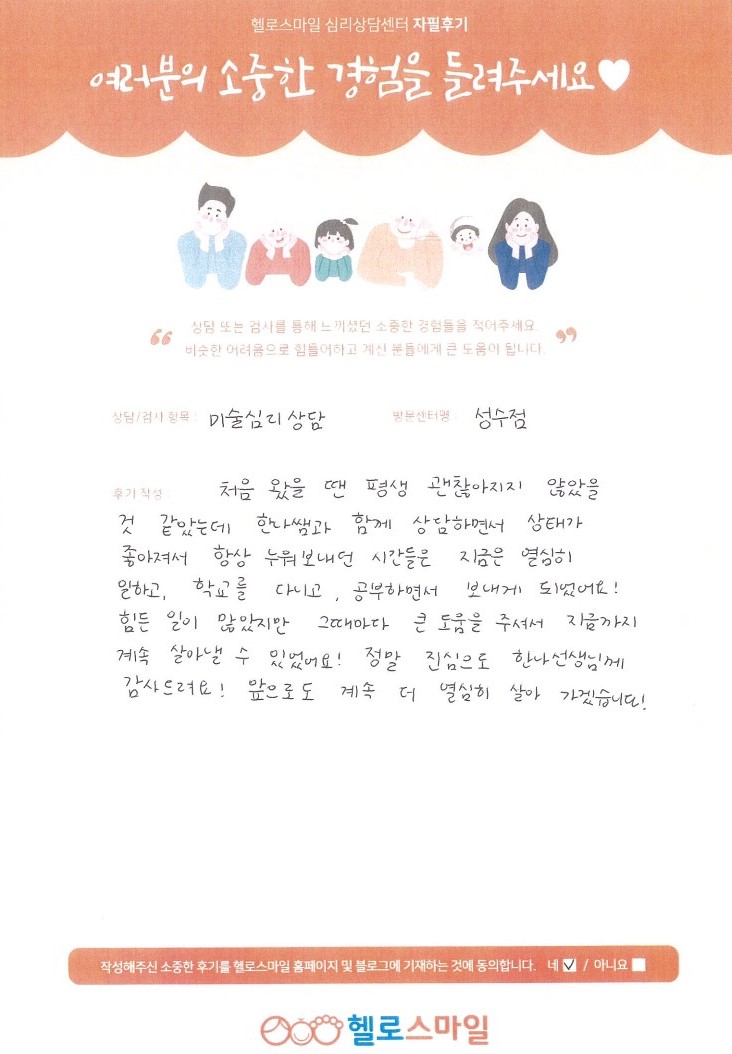 헬로스마일 심리상담센터 자필후기
여러분의 소중한 경험을 들려주세요♥
“ 상담 또는 검사를 통해 느끼셨던 소중한 경험들을 적어주세요. ”
비슷한 어려움으로 힘들어하고 계신 분들에게 큰 도움이 됩니다.
상담/검사 항목 : 미술심리상담 방문센터명 : 성수점
후기 작성 : 처음 왔을 땐 평생 괜찮아지지 않았을
것 같았는데 한나쌤과 함께 상담하면서 상태가
좋아져서 항상 누워보내던 시간들은 지금은 열심히
일하고, 학교를 다니고, 공부하면서 보내게 되었어요!
힘든 일이 많았지만 그때마다 큰 도움을 주셔서 지금까지
계속 살아낼 수 있었어요! 정말 진심으로 한나선생님께
감사드려요! 앞으로도 계속 더 열심히 살아 가겠습니다!
작성해주신 소중한 후기를 헬로스마일 홈페이지 및 블로그에 기재하는 것에 동의합니다. 네 ☑ / 아니요 □
헬로스마일